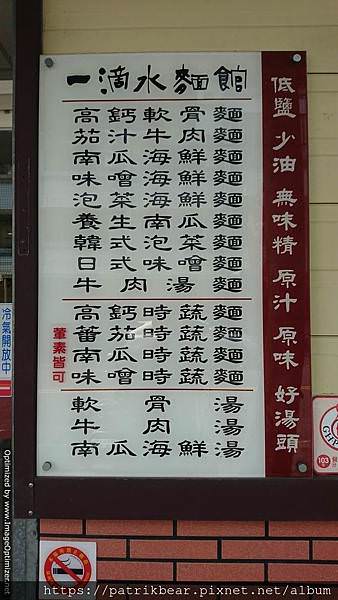 一滴水麵館
高鈣軟骨麵
茄汁牛肉麵
南瓜海鮮麵
味噌海鮮麵
泡菜海鮮麵
養生南瓜麵
韓式泡菜麵
日式味噌麵
牛肉湯麵
高鈣時蔬麵
蕃茄時蔬麵
南瓜時蔬麵
味噌時蔬麵
葷素皆可
軟骨湯
牛肉湯
南瓜海鮮湯
低鹽 少油 無味精 原汁 原味 好湯頭
冷氣開放中
Optimized by www.ImageOptimizer.net
https://patrikbear.pixnet.net/album